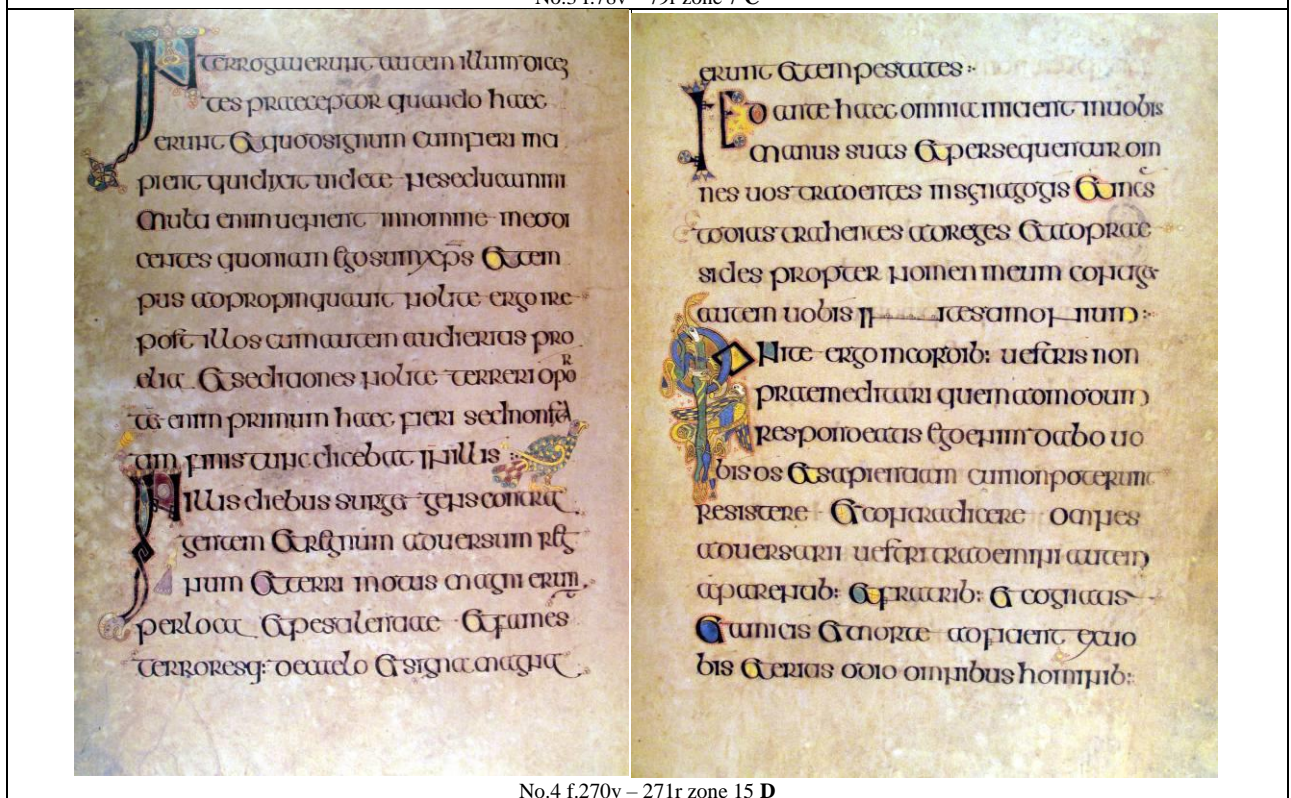 No.3 f.78v – 79r zone 7 C
INterrogauerunt autem illum dicen
tes praeceptor quando haec
erunt et quod signum cum fieri inci
pient qui dixit uidete ne seducamini
multi enim uenient in nomine meo di
centes quoniam ego sum xps et tem
pus adpropinquauit nolite ergo ire
post illos cum autem audieritis pro
elia et seditiones nolite terreri opor
tet enim primum haec fieri sed non sta
tim finis tunc dicebat illis
IN illis diebus surget gens contra
gentem et regnum aduersum reg
num et terri motus magni erunt
per loca et pestilentiae et fames
terroresq: de caelo et signa magna
erunt et tempestates
sed ante haec omnia inicient in uobis
manus suas et persequentur om
nes uos tradentes in synagogis et in
todias trahentes ad reges et ad prae
sides propter nomen meum
autem uobis
Ponite ergo in cordib: uestris non
praemeditari quemadmodum
respondeatis ego enim dabo uo
bis os et sapientiam cui non poterunt
resistere et contradicere omnes
aduersarii uestri trademini autem
a parentib: et fratrib: et cognatis
et amicis et morte adficient ex uo
bis et eritis odio omnibus hominib:
No.4 f.270v – 271r zone 15 D